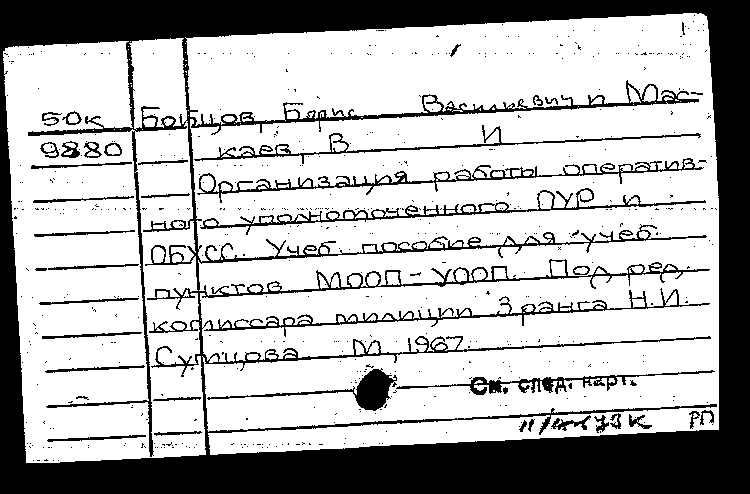 50к Бобцов, Борис Васильевич и Мас-
9880 каев, В И
Организация работы оператив-
ного уполномоченного ОУР и
ОБХСС. Учеб. пособие для учеб.
пунктов МООП-УООП. Под ред.
комиссара милиции 3 ранга Н.И.
Сумцова М, 1967.
См. след. карт.
РП